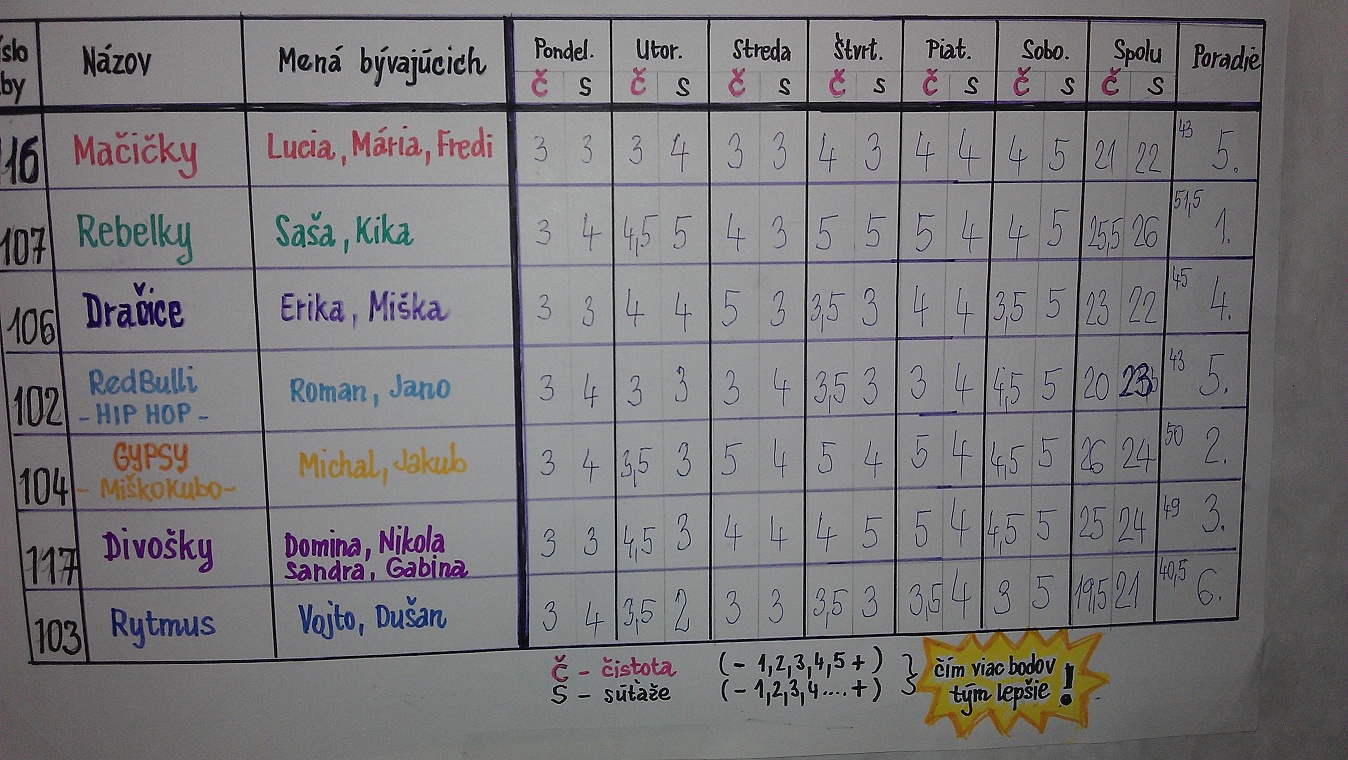 íslo Názov Mená bývajúcich Pondel. Utor. Streda Štvrt. Piat. Sobo. Spolu Poradie
by Č S Č S Č S Č S Č S Č S Č S
116 Mačičky Lucia, Mária, Fredi 3 3 3 4 3 3 4 3 4 4 4 5 21 22 43 5.
107 Rebelky Saša, Kika 3 4 4,5 5 4 3 5 5 5 4 4 5 25,5 26 51,5 1.
106 Dračice Erika, Miška 3 3 4 4 5 3 3,5 3 4 4 3,5 5 23 22 45 4.
102 RedBulli Roman, Jano 3 4 3 3 3 4 3,5 3 3 4 4,5 5 20 23 43 5.
- HIP HOP -
104 GYPSY Michal, Jakub 3 4 3,5 3 5 4 5 4 5 4 4,5 5 26 24 50 2.
- MiškoKubo -
117 Divošky Domina, Nikola 3 3 4,5 3 4 4 4 5 5 4 4,5 5 25 24 49 3.
Sandra, Gabina
103 Rytmus Vojto, Dušan 3 4 3,5 2 3 3 3,5 3 3,5 4 3 5 19,5 21 40,5 6.
Č - čistota (- 1,2,3,4,5 +)
S - súťaže (- 1,2,3,4....+)
čím viac bodov
tým lepšie !